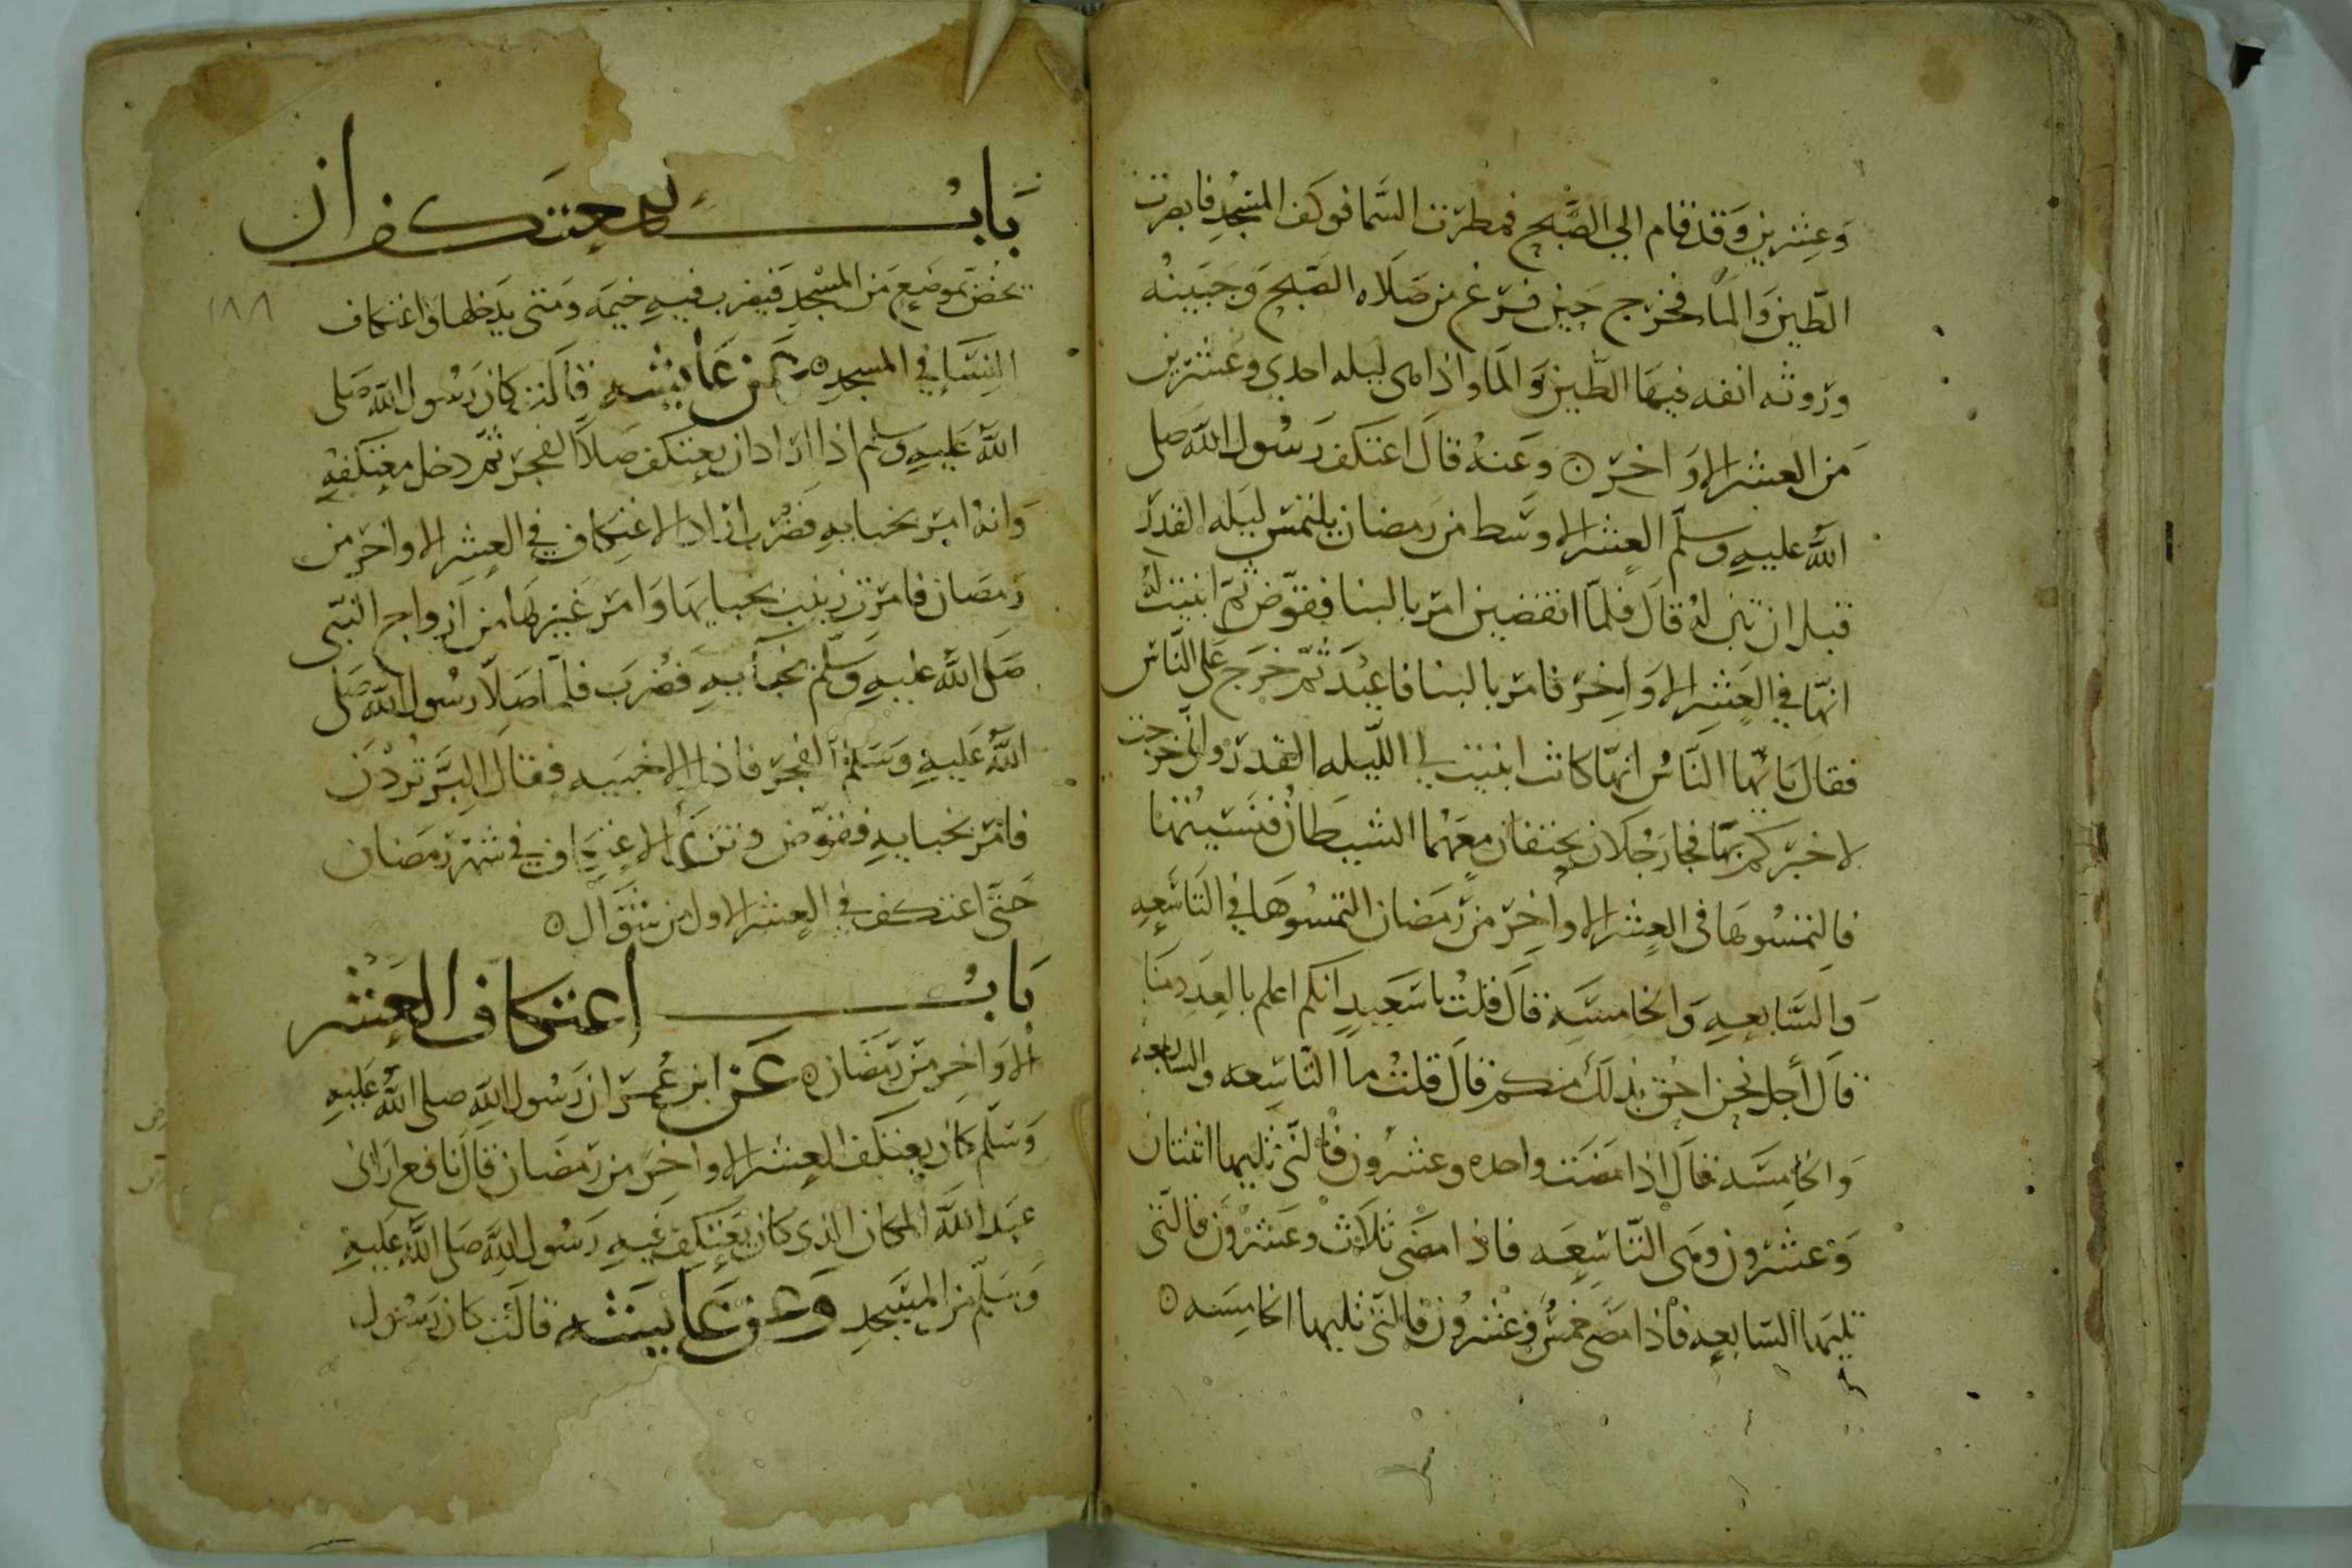 وعشرين وقد قام الي الصبح فمطرت السما فوكف المسجد فابصرت
الطين والما فخرج حين فرغ من صلاه الصبح وجبينه
وروثه انفه فيها الطين والما واذا هي ليله احدي وعشرين
من العشر الاواخر ۞ وعنه قال اعتكف رسول الله صلى
الله عليه وسلم العشر الاوسط من رمضان يلتمس ليله القدر
قبل ان تبين له قال فلما انقضين امر بالبنا فقوض ثم ابينت له
انها في العشر الاواخر فامر بالبنا فاعيد ثم خرج على الناس
فقال يايها الناس انها كانت ابينت لي الليله القدر واني خرجت
لاخبركم بها فجا رجلان يحتقان معهما الشيطان فنسيتها
فالتمسوها في العشر الاواخر من رمضان التمسوها في التاسعه
والسابعه والخامسه قال قلت يا سعيد انكم اعلم بالعدد منا
قال أجل نحن احق بذلك منكم قال قلت ما التاسعه والسابعه
والخامسه قال اذا مضت واحده وعشرون فالتي تليها اثنتان
وعشرون وهي التاسعه فاذا مضى ثلاث وعشرون فالتي
تليها السابعه فاذا مضى خمس وعشرون فالتي تليها الخامسه ۞
باب للمعتكف ان
يخص بموضع من المسجد فيضرب فيه خيمه ومتى يدخلها واعتكاف
النسا في المسجد ۞ عن عايشه قالت كان رسول الله صلى
الله عليه وسلم اذا اراد ان يعتكف صلا الفجر ثم دخل معتكفه
وانه امر بخبايه فضرب اراد الاعتكاف في العشر الاواخر من
رمضان فامرت زينب بخبايها وامر غيرها من ازواج النبي
صلى الله عليه وسلم بخبآيه فضرب فلما صلا رسول الله صلى
الله عليه وسلم الفجر فاذا الاخبيه فقال البر تردن
فامر بخبايه فقوض وترك الاعتكاف في شهر رمضان
حتى اعتكف في العشر الاول من شوال ۞
باب اعتكاف العشر
الاواخر من رمضان ۞ عن ابن عمر ان رسول الله صلى الله عليه
وسلم كان يعتكف العشر الاواخر من رمضان قال نافع اراني
عبد الله المكان الذي كان يعتكف فيه رسول الله صلى الله عليه
وسلم من المسجد وعن عايشه قالت كان رسول
١٨٨